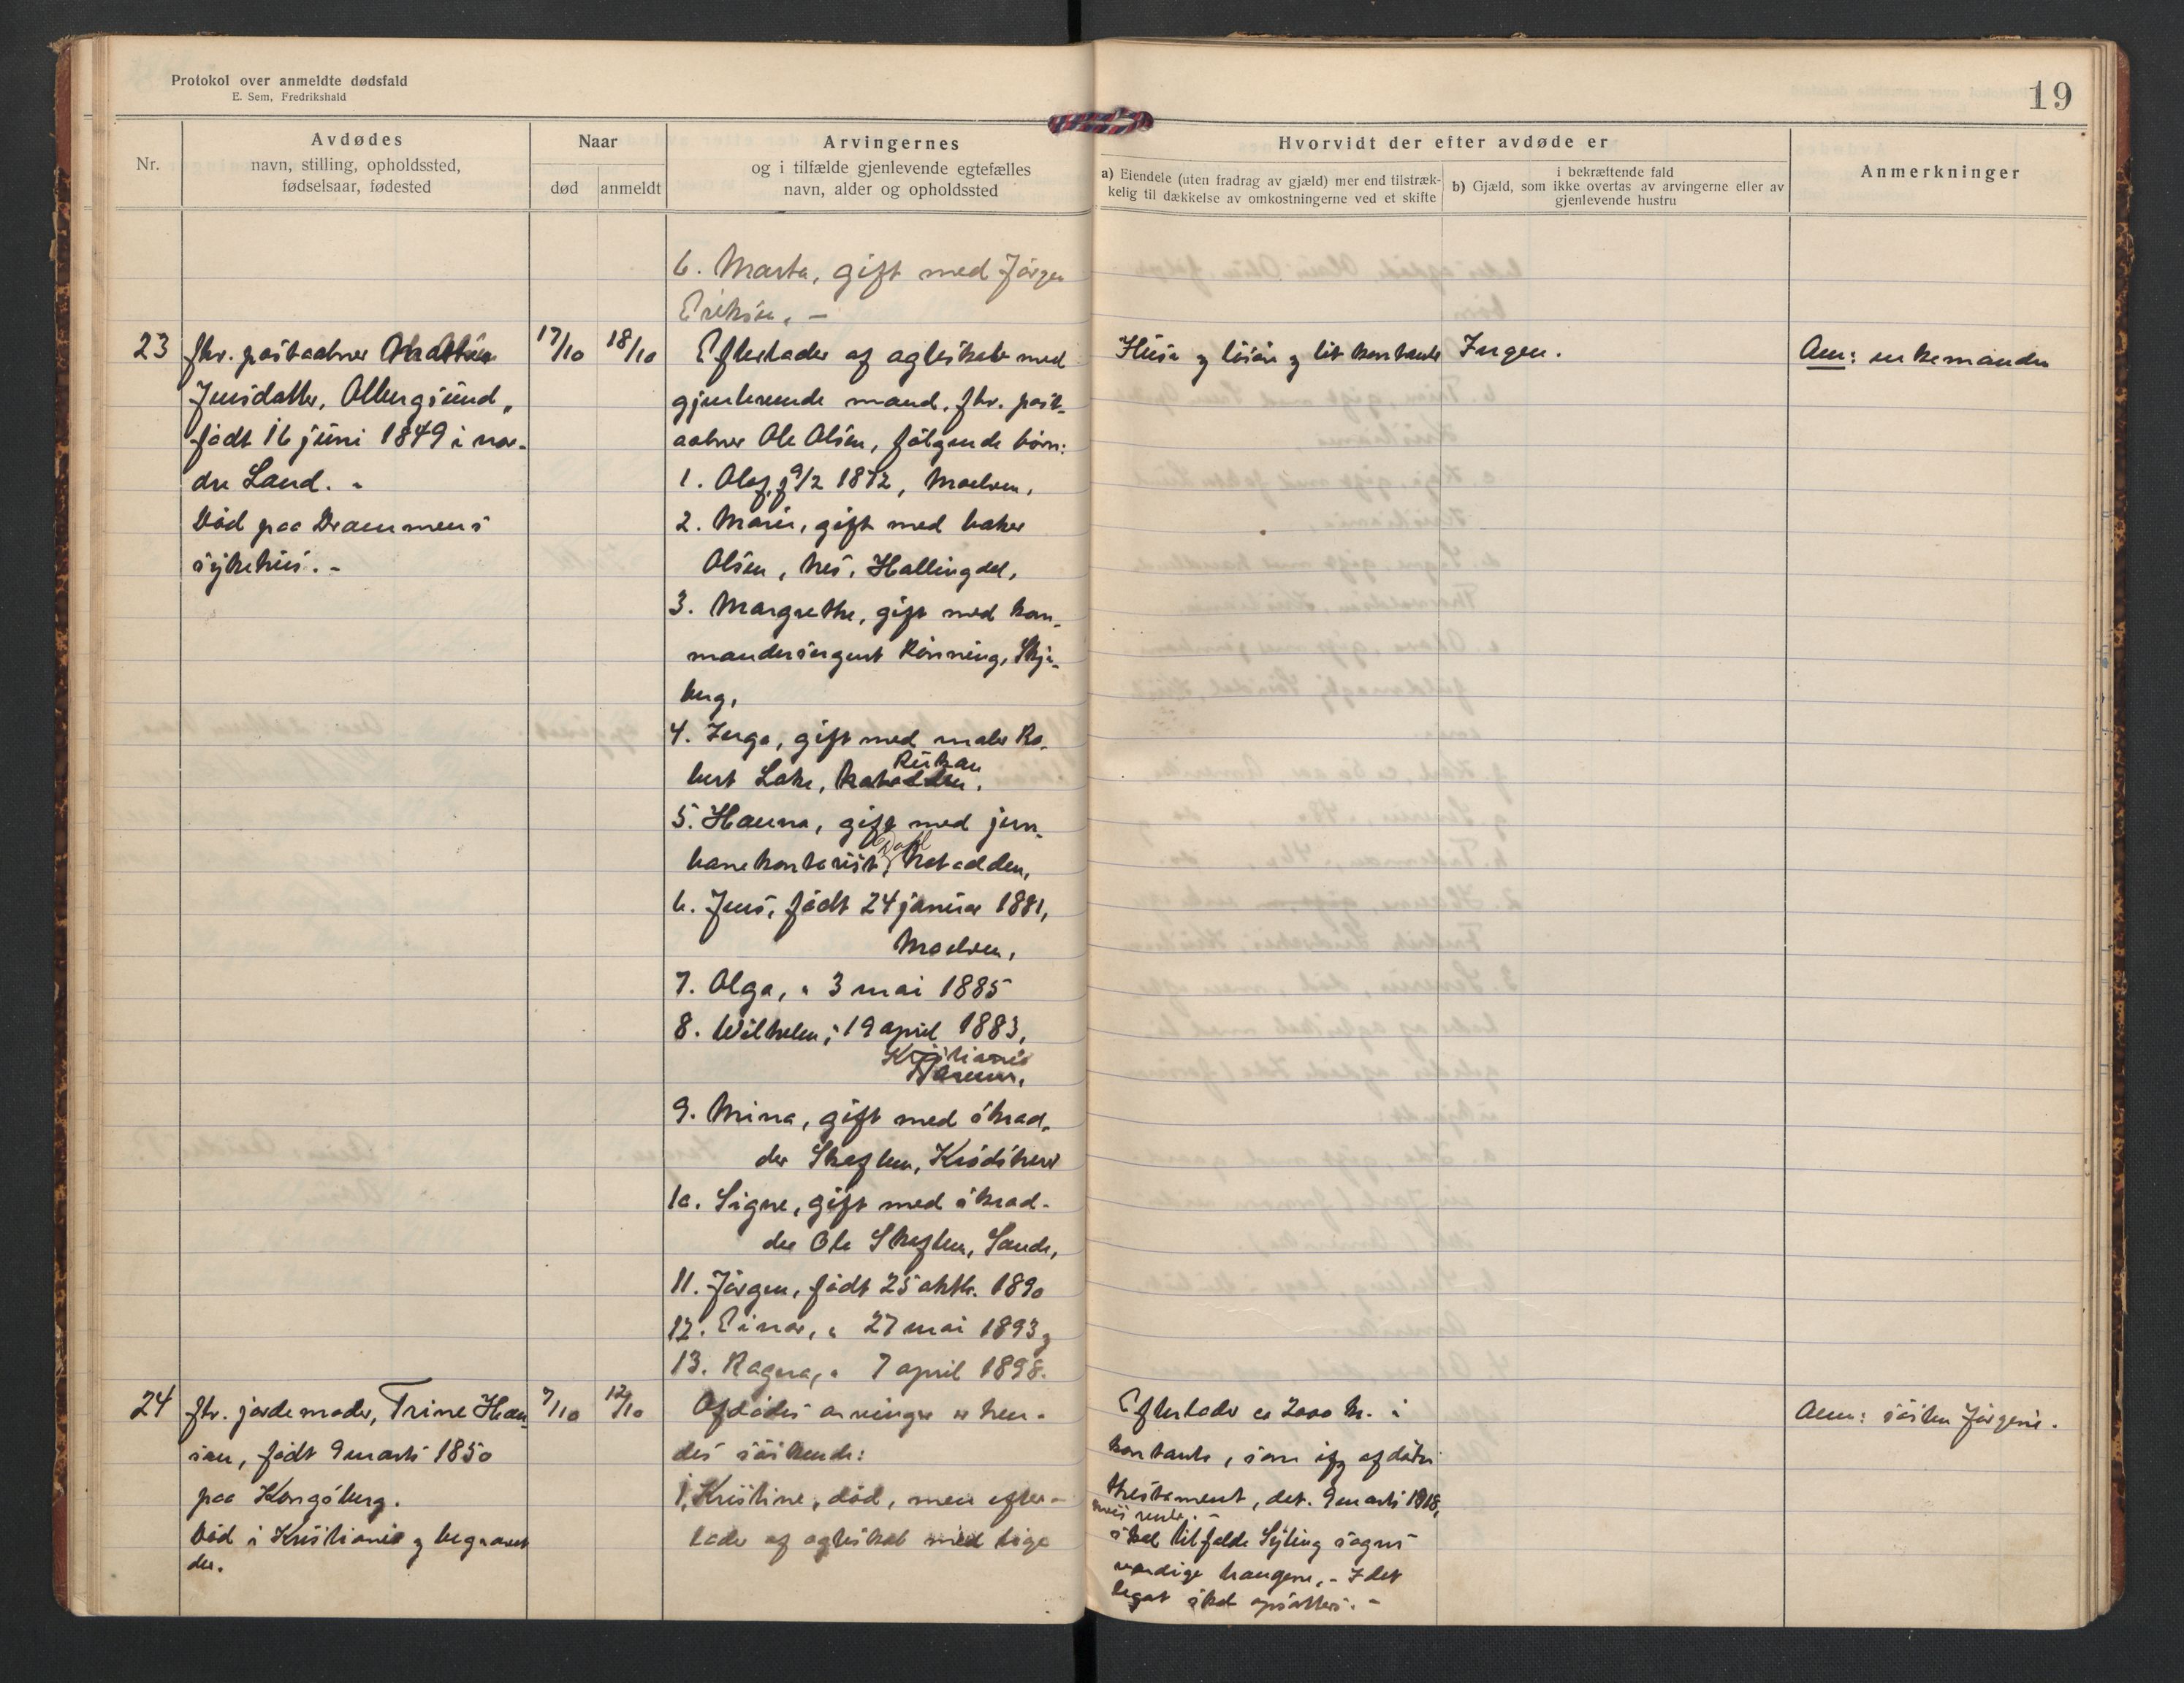 Protokol over anmeldte dødsfald
E. Sem, Fredrikshald
19
Nr.
Avdødes
navn, stilling, opholdssted,
fødselsaar, fødested
Naar
død
anmeldt
Arvingernes
og i tilfælde gjenlevende egtefælles
navn, alder og opholdssted
Hvorvidt der efter avdøde er
a) Eiendele (uten fradrag av gjæld) mer end tilstræk-
kelig til dækkelse av omkostningerne ved et skifte
i bekræftende fald
b) Gjæld, som ikke overtas av arvingerne eller av
gjenlevende hustru
Anmerkninger
6. Marta, gift med Jörgen
Eriksen. -
23
fhv. postaabner
Jensdatter, Ollbergsund,
födt 16 juni 1849 i nor-
dre Land. -
Död paa Drammens
sykehus. -
17/10
18/10
Efterlader af egteskab med
gjenlevende mand, fhv. post-
aabner Ole Olsen, fölgende börn:
1. Olaf, f 9/2 1872, Moelven,
2. Marie, gift med baker
Olsen, Nes, Hallingdal,
3. Margrethe, gift med kom-
mandersergent Rönning, Skje-
berg,
4. Inga, gift med maler Ro-
bert Lohe, Notodden, Rukan
5. Hanna, gift med jern-
banekontorist Dahl, Notodden,
6. Jens, födt 24 januar 1881,
Moelven,
7. Olga, " 3 mai 1885
8. Wilhelm, " 19 april 1883,
Kristiania
9. Minna, gift med skræd-
der Skeflen, Krödsherr
10. Signe, gift med skræd-
der Ole Skeflen, Sande,
11. Jörgen, födt 25 oktbr. 1890
12. Einar, " 27 mai 1893 og
13. Ragna, " 7 april 1898.
Huse og lösöre og lit kontanter
Ingen.
Anm: enkemanden
24
fhv. jordemoder, Trine Han-
sen, födt 9 marts 1850
paa Kongsberg.
Död i Kristiania og begravet
der.
7/10
12/10
Afdödes arvinger er hen-
des söskende:
1. Kristine, död, men efter-
lader af egteskab med
Efterlader ca 2000 kr. i
kontanter, som ifg afdödes
thestament, dat. 9 marts 1918,
skal tilfalde Sylling sogns
værdige trængene, - I det
legat skal opsættes. -
Anm: sösteren Jörgine.